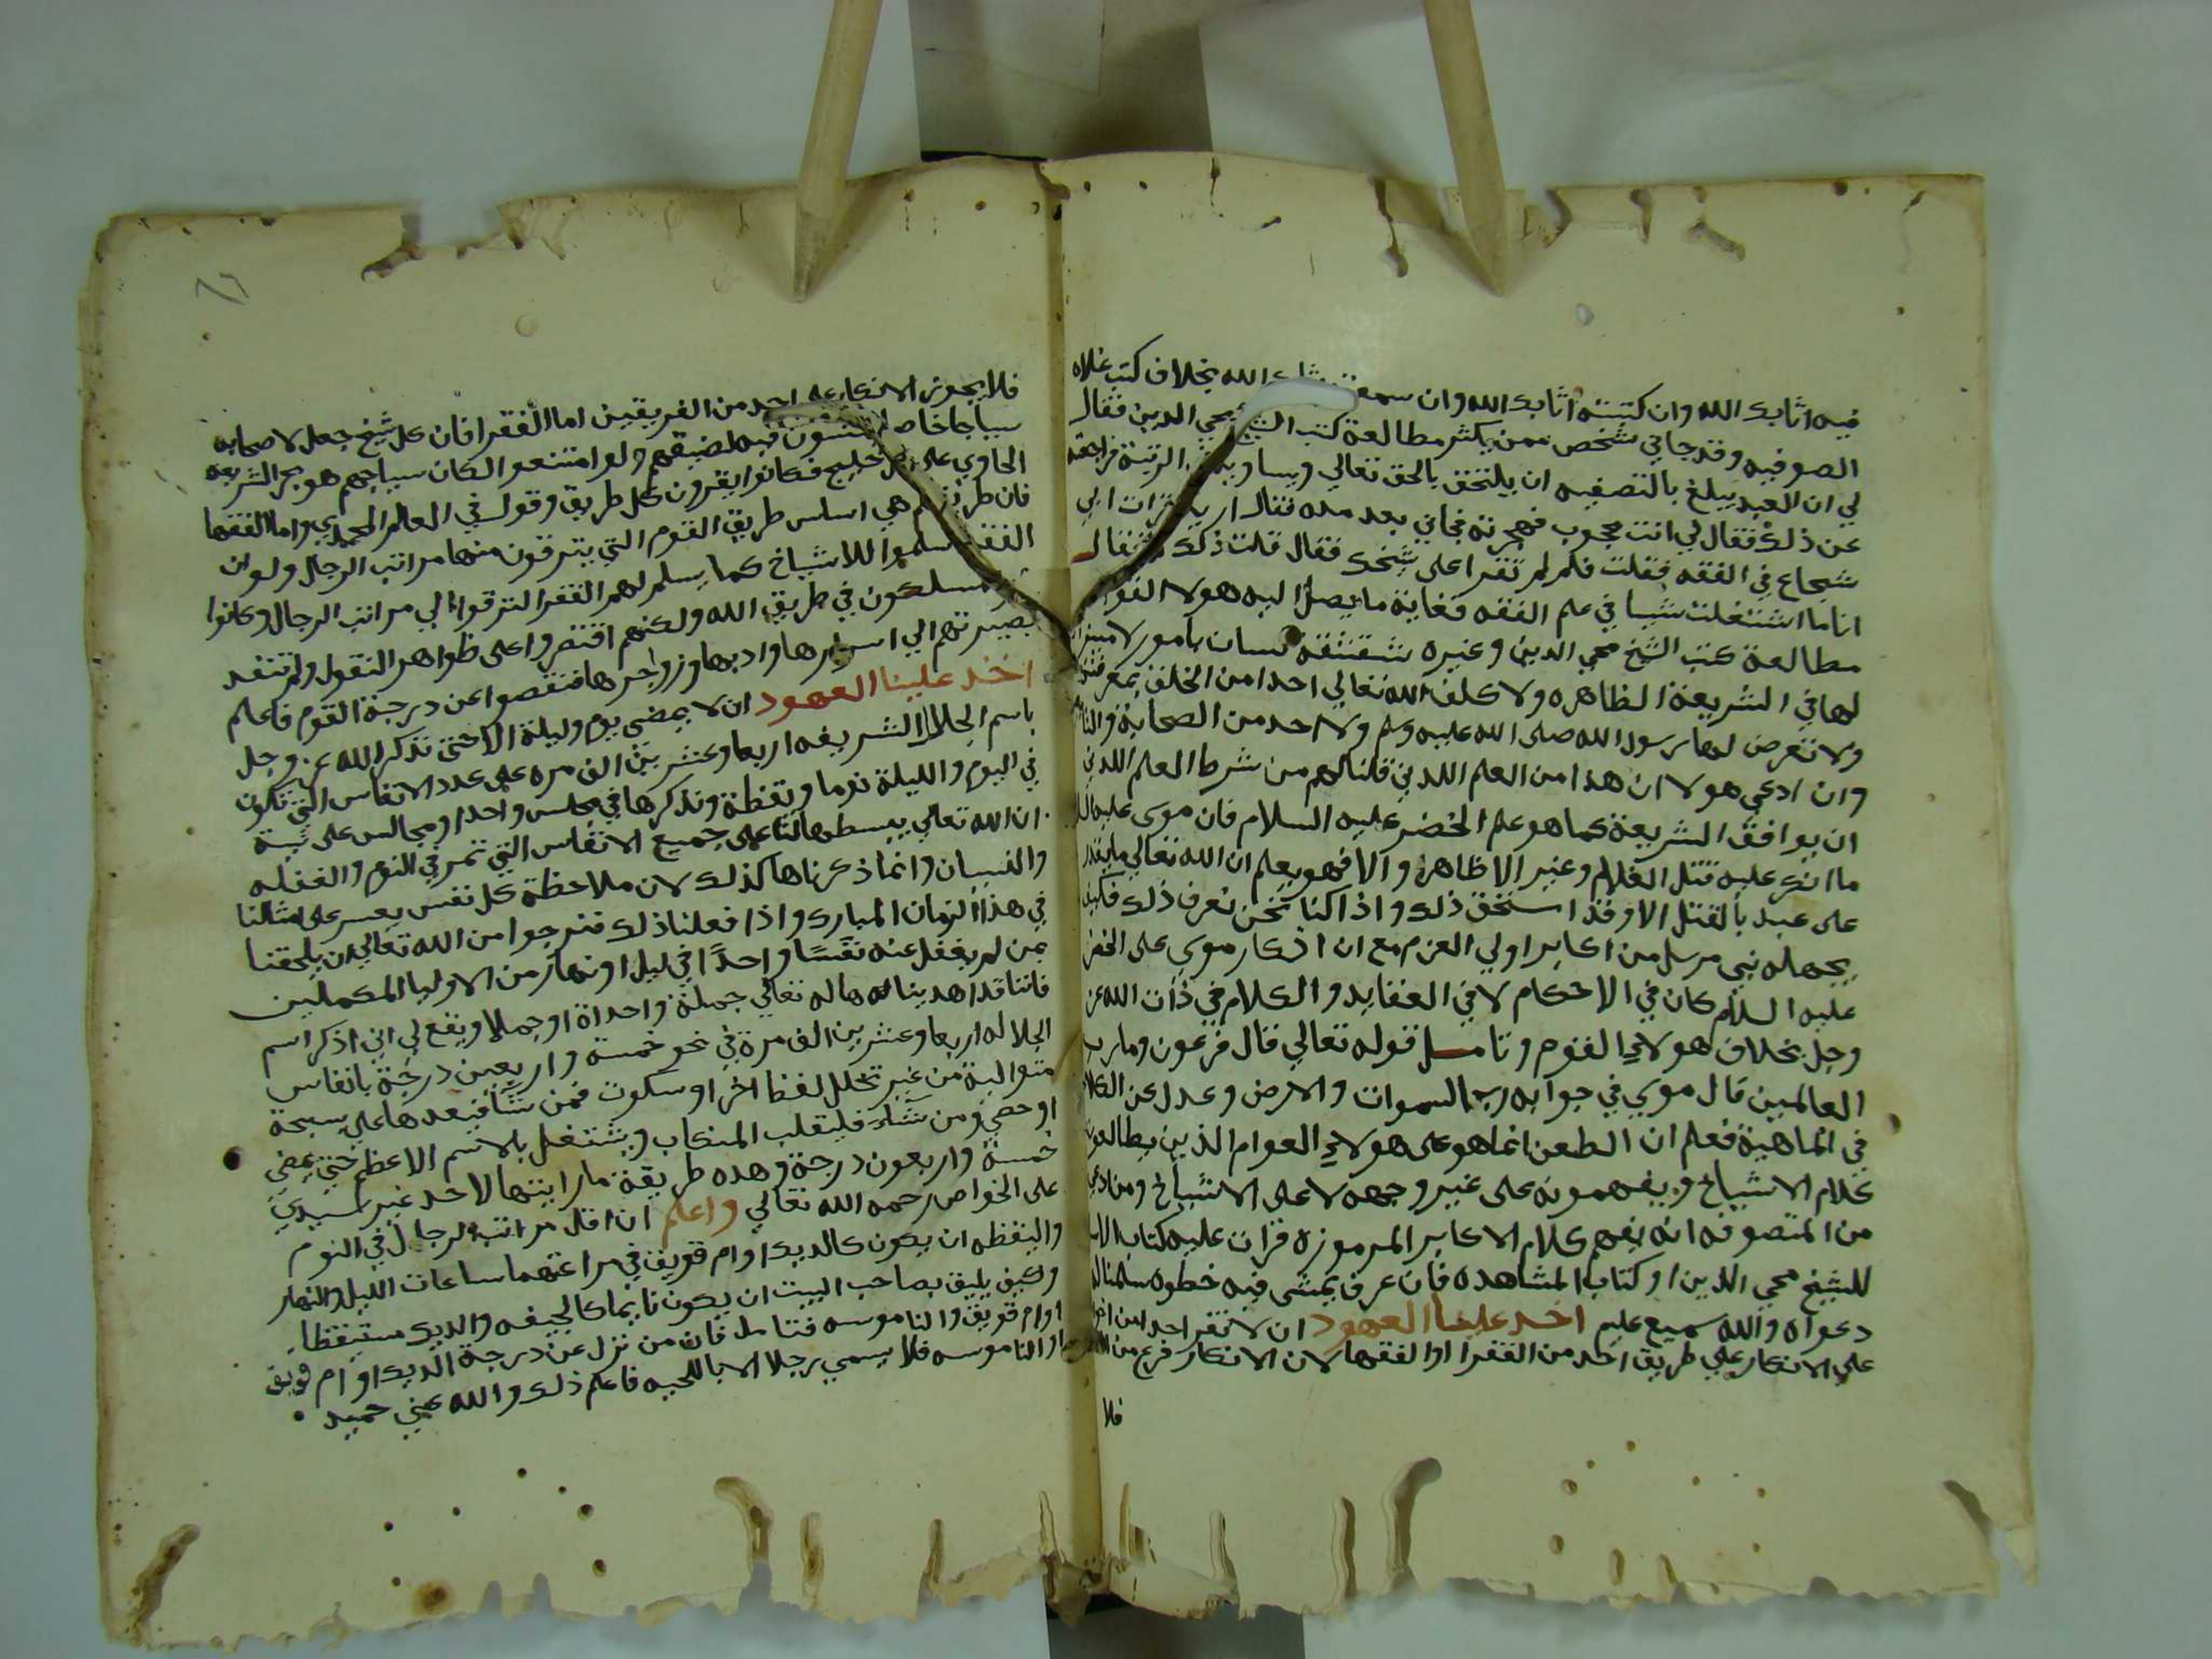 فيه اثابك الله وان كتبته اثابك الله وان سمعته اثابك الله بخلاف كتب غلاة
الصوفيه وقد جاني شخص ممن يكثر مطالعة كتب الشيخ محي الدين فقال
لي ان العبد يبلغ بالتصفيه ان يلتحق بالحق تعالي ويساويه في الرتبة فراجعته
عن ذلك فقال لي انت محجوب فهجرته فجاني بعد مده فقال اريد قرات ابي
شجاع في الفقه فقلت فلم لم تقرا علي شيخك فقال قلت ذلك فقال
انا ما اشتغلت شيا في علم الفقه فغاية ما يصل اليه هولا القوم
مطالعة كتب الشيخ محي الدين وغيره شقشقة لسان بامور لا
لها في الشريعة الظاهره ولا كلف الله تعالي احدا من الخلق بمعرفتها
ولا تعرض لها رسول الله صلى الله عليه وسلم ولا احد من الصحابة والتا
وان ادعي هولا ان هذا من العلم اللدني قلنا لهم من شرط العلم اللدني
ان يوافق الشريعة كما هو علم الخضر عليه السلام فان موسى عليه السلا
ما انكر عليه قتل الغلام وغيره الا ظاهرا والا فهو يعلم ان الله تعالي ما يقدر
على عبد بالقتل الا وقد استحق ذلك واذا كنا نحن نعرف ذلك فكيف
يجهله نبي مرسل من اكابر اولي العزم مع ان انكار موسي على الخضر
عليه السلام كان في الاحكام لا في العقايد والكلام في ذات الله عز
وجل بخلاف هولاي القوم وتامل قوله تعالي قال فرعون وما رب
العالمين قال موسي في جوابه رب السموات والارض وعدل عن الكلام
في الماهية فعلم ان الطعن انما هو على هولاي العوام الذين يطالعون
كلام الاشياخ ويفهمونه على غير وجهه لا على الاشياخ ومن ادعي
من المتصوفه انه يفهم كلام الاكابر المرموزه قرات عليه كتاب
للشيخ محي الدين او كتاب المشاهده فان عرف يمشي فيه خطوه سلمنا له
دعواه والله سميع عليم اخذ علينا العهود ان لا نقر احدا من اخو
علي الانكار علي طريق احد من الفقرا او الفقها لان الانكار فرع من
فلا
فلا يجوز الانكار على احد من الفريقين اما الفقرا فان كل شيخ جعل لاصحابه
سياجا خاصا فيه لضيقهم ولو امتنعوا لكان سياجهم هو بحر الشريعه
الحاوي على كل خليج فكانوا يقرون كل طريق وقول في العالم المحمدي واما الفقها
فان طريقهم هي اساس طريق القوم التي يترقون منها مراتب الرجال ولو ان
الفقها سلموا للاشياخ كما يسلم لهم الفقرا لترقوا الي مراتب الرجال وكانوا
يسلكون في طريق الله ولكنهم اقتصروا على ظواهر النقول ولم تنفد
بصيرتهم الي اسرارها وادبها وزواجرها فنقصوا عن درجة القوم فاعلم
اخذ علينا العهود ان لا يمضي يوم وليلة الا حتى نذكر الله عز وجل
باسم الجلالة الشريفه اربعا وعشرين الف مره على عدد الانفاس التي تكون
في اليوم والليلة نوما ويقظة ونذكرها في مجلس واحد او مجالس على نية
ان الله تعالي يبسطها لنا على جميع الانفاس التي تمر في النوم والغفله
والنسيان وانما ذكرناها كذلك لان ملاحظة كل نفس يعسر على امثالنا
في هذا الزمان المبارك واذا فعلنا ذلك فنرجوا من الله تعالي ان يلحقنا
بمن لم يغفل عنه نفسا واحدا في ليل او نهار من الاوليا المكملين
فاننا قد اهديناها له تعالي جملة واحدة او جملا ويقع لي اني اذكر اسم
الجلاله اربعا وعشرين الف مرة في نحو خمسة واربعين درجة بانفاس
متوالية من غير تخلل لفظ اخر او سكوت فمن شا فيعدها على سبحة
او حصي ومن شا فليقلب المنكاب ويشتغل بالاسم الاعظم حتى يمضي
خمسة واربعون درجة وهذه طريقة ما رايتها لاحد غير لسيدي
على الخواص رحمه الله تعالي واعلم ان اقل مراتب الرجال في النوم
واليقظه ان يكون كالديك او ام قويق في مراعتهما ساعات الليل والنهار
وكيف يليق بصاحب البيت ان يكون نايما كالجيفه والديك مستيقظا
او ام قويق والناموسه فتامل فان من نزل عن درجة الديك او ام قويق
او الناموسه فلا يسمي رجلا الا باللحيه فاعلم ذلك والله غني حميد